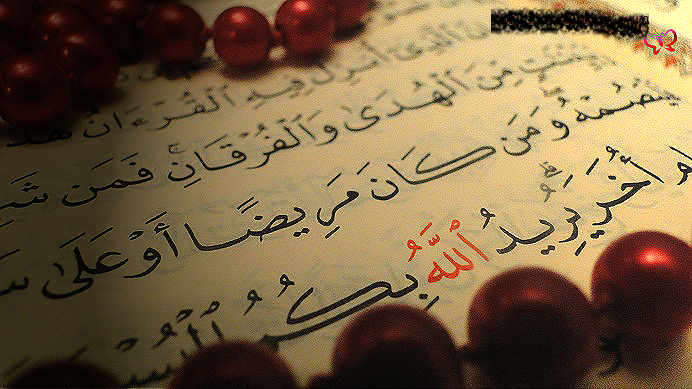 الَّذِىٓ أُنزِلَ فِيهِ ٱلْقُرْءَانُ هُدًى
مِّنَ ٱلْهُدَىٰ وَٱلْفُرْقَانِ ۚ فَمَن شَهِدَ
فَلْيَصُمْهُ وَمَن كَانَ مَرِيضًا أَوْ عَلَىٰ
أُخَرَ ۗ يُرِيدُ ٱللَّهُ بِكُمُ ٱلْيُسْرَ